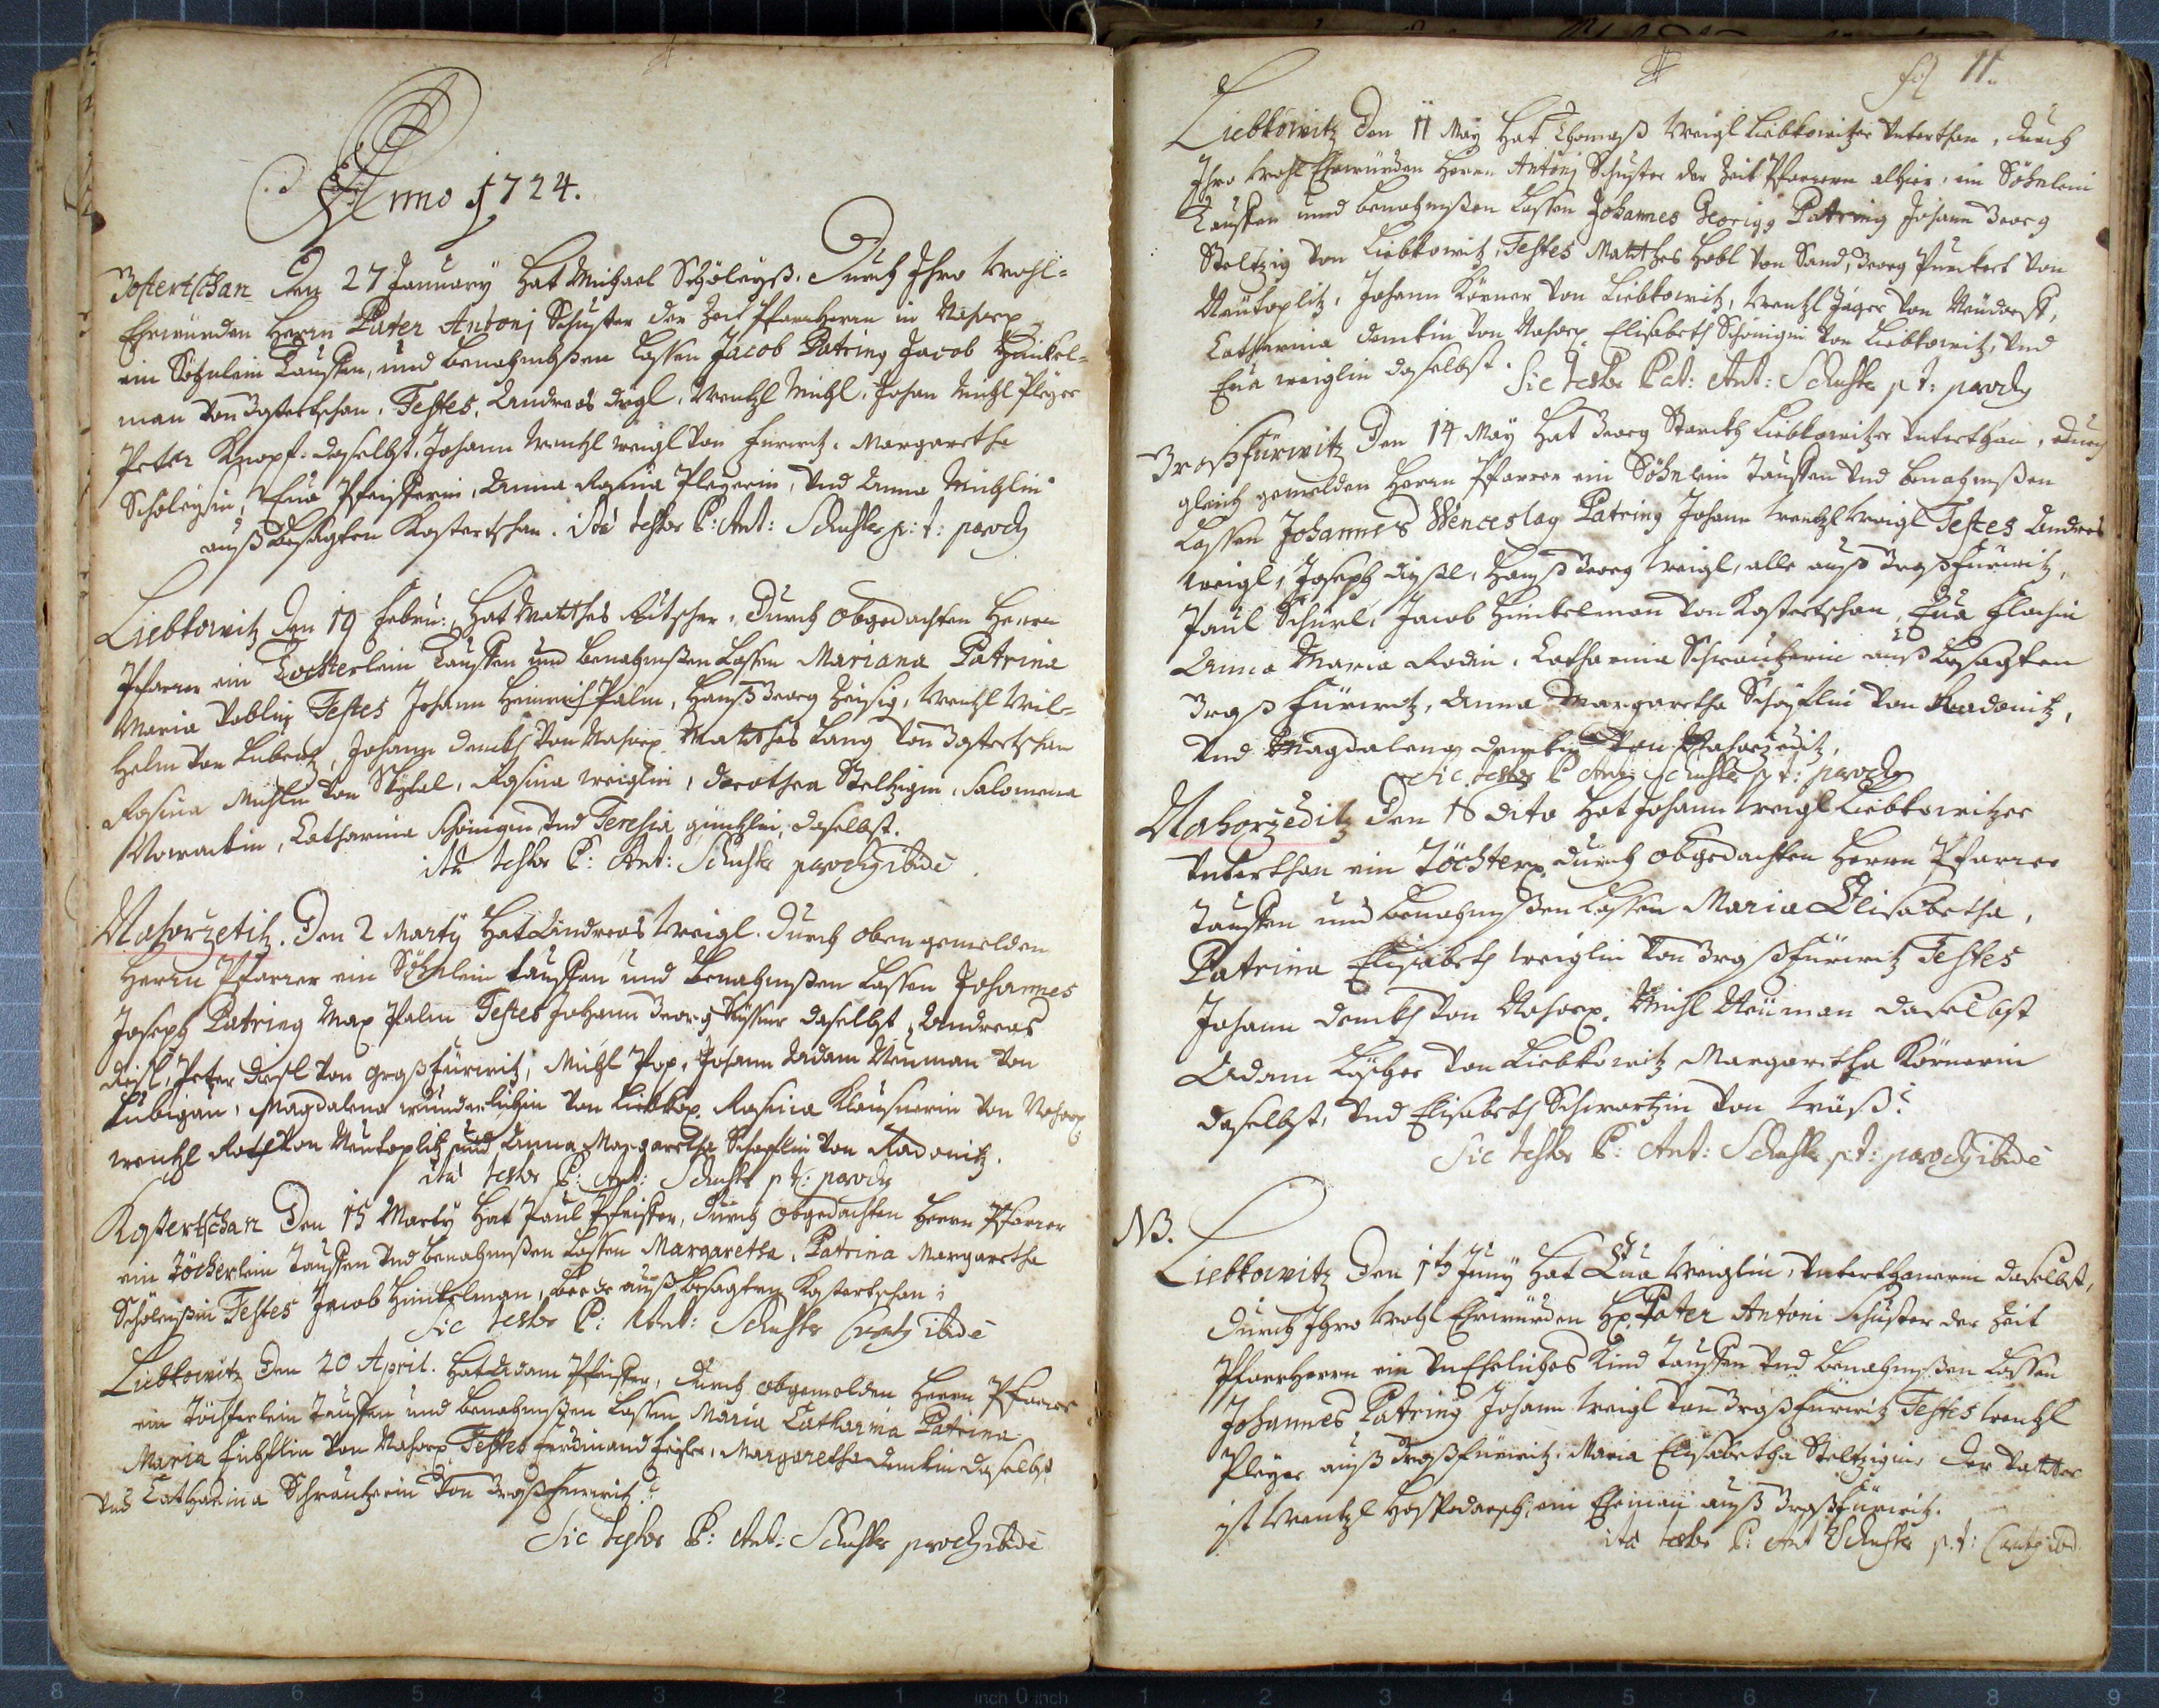 Anno 1724.
Kostertschan den 27 January hat Michael Schöleyß, durch Ihro Wohl-
Ehrwürden Herrn Pater Antonj Schuster der Zeit Pfarrherrn in Nahorz.
ein Söhnlein Tauffen, und benahmbßen lassen Jacob Patring Jacob Hinkel-
man von Kostertschan, Testes, Andreas Wentzl Michl, Johan Michl Pleyer
Peter Knopf daselbst, Johann Wentzl Weigl von Fürwitz, Margaretha
Schöleysin, Eua Pfeifferin, Anna Rosina Plegerin, und Anna Michlin
auß besagten Kostertschan. ita testor P: Ant: Schuster p: t: paroch
Liebkowitz den 19 Febru: hat Matthes Rutscher, durch obgedachten Herrn
Pfarrer ein Tochterlein Tauffen und benahmßen lassen Mariana Patrina
Maria Testes Johann Heinrich Palm, Hanß Georg Wentzl Wil-
helm von Lubentz, Johann Demth von Nahorz. Matthes Lang von Kostertschan
Rosina Michlin von Rosina Weiglin, Dorothea Steltzigin, Salomena
Catharina Schönigin und Teresia güntzlin, daselbst.
ita testor P: Ant: Schuster parochy ibidē
Nahorzetitz. Den 2 Marty hat Andreas Weigl. durch oben gemelden
Herrn Pfarrer ein Söhnlein tauffen und benahmßen lassen Johannes
Joseph Patring Max Palm Testes Johann Georg daselbst, Andreas
Peter von groß fürwitz, Michl Pop, Johann Adam Neuman von
Lubigau, Magdalena wunderlichin von Liebkoz. Rosina Klausnerin von Nahorz
wentzl Roth von Neutoplitz und Anna Margaretha Schöflin von Radonitz.
ita testor P: Ant: Schuster p t: paroch
Kostertschan Den 15 Marty hat Paul Pfeiffer, durch obgedachten Herrn Pfarrer
ein Töchterlein Tauffen und benahmßen lassen Margaretha, Patrina Margaretha
Schöleyßin Testes Jacob Hinckelman, beede auß besagten Kostertschan
Sic testor P: Ant: Schuster ibidē
Liebkowitz Den 20 April. hat Adam Pfeiffer, durch obgemelden Herrn Pfarrer
ein Töchterlein Tauffen und benahmßen lassen Maria Catharina Patrina
Maria von Nahorz. Testes Ferdinand Margaretha Demtin daselbst
und Catharina Schrautzerin von Groß fürwitz.
Sic testor P: Ant: Schuster paroch ibidē
fol 11.
Liebkowitz den 11 May hat Thomaß Weigl Liebkowitzer Unterthan, durch
Ihro Wohl Ehrwürden Herrn Antonj Schuster der Zeit Pfarrern alhier, ein Söhnlein
Tauffen und benahmßen lassen Johannes Georigs Patring Johann Georg
Steltzig von Liebkowitz, Testes Matthes Hobl von Sand, Georg Punckert von
Neutoplitz, Johann Körner von Liebkowitz, Wentzl Jäger von Neudorff,
Catharina Demtin von Nahorz. Elisabeth Schönigin von Liebkowitz, und
Eua weiglin daselbst.
Sic testor Pat: Ant: Schuster p t: paroch
Großfürwitz Den 14 May hat Georg Starckh Liebkowitzer unterthan, durch
gleich gemelden Herrn Pfarrer ein Söhnlein Tauffen und benahmßen
lassen Johannes Wenceslaq Patring Johann Wentzl Weigl Testes Andreas
Weigl, Joseph Hanß Georg Weigl, alle auß Groß fürwitz,
Paul Schürl, Jacob Hinkelman von Kostertschan, Eua
Anna Maria Rodin, Catharina Schrautzerin auß besagten
Groß Fürwitz, Anna Margaretha Schöflin von Radonitz,
und Magdalena Demtin von Nahorzeditz,
Sic testor P Ant: Schuster p t: paroch
Nahorzeditz Den 18 dito hat Johann Weigl Liebkowitzer
unterthan ein Töchterx. durch obgedachten Herrn Pfarrer
Tauffen und benahmßen lassen Maria Elisabetha,
Patrina Elisabeth weiglin von Groß fürwitz Testes
Johann Demth von Nahorz. Michl Neuman daselbst
Adam Löscher von Liebkowitz Margaretha Körnerin
daselbst, und Elisabeth Schwartzin von
Sic testor P: Ant: Schuster p t: parochy ibidē
NB.
Liebkowitz Den Juny hat Eua Weiglin, Unterthanerin daselbst,
durch Ihro Wohl Ehrwürden H. Pater Antoni Schuster der Zeit
Pfarrherrn ein unEheliches Kind Tauffen und benahmßen lassen
Johannes Patring Johann Weigl von Groß fürwitz Testes Wentzl
Pleyer auß Großfürwitz, Maria Elisabetha Steltzigin, der Vatter
ist Wentzl Hospodarsch, ein Eheman auß Groß fürwitz.
ita testor P: Ant Schuster p. t: ibid.